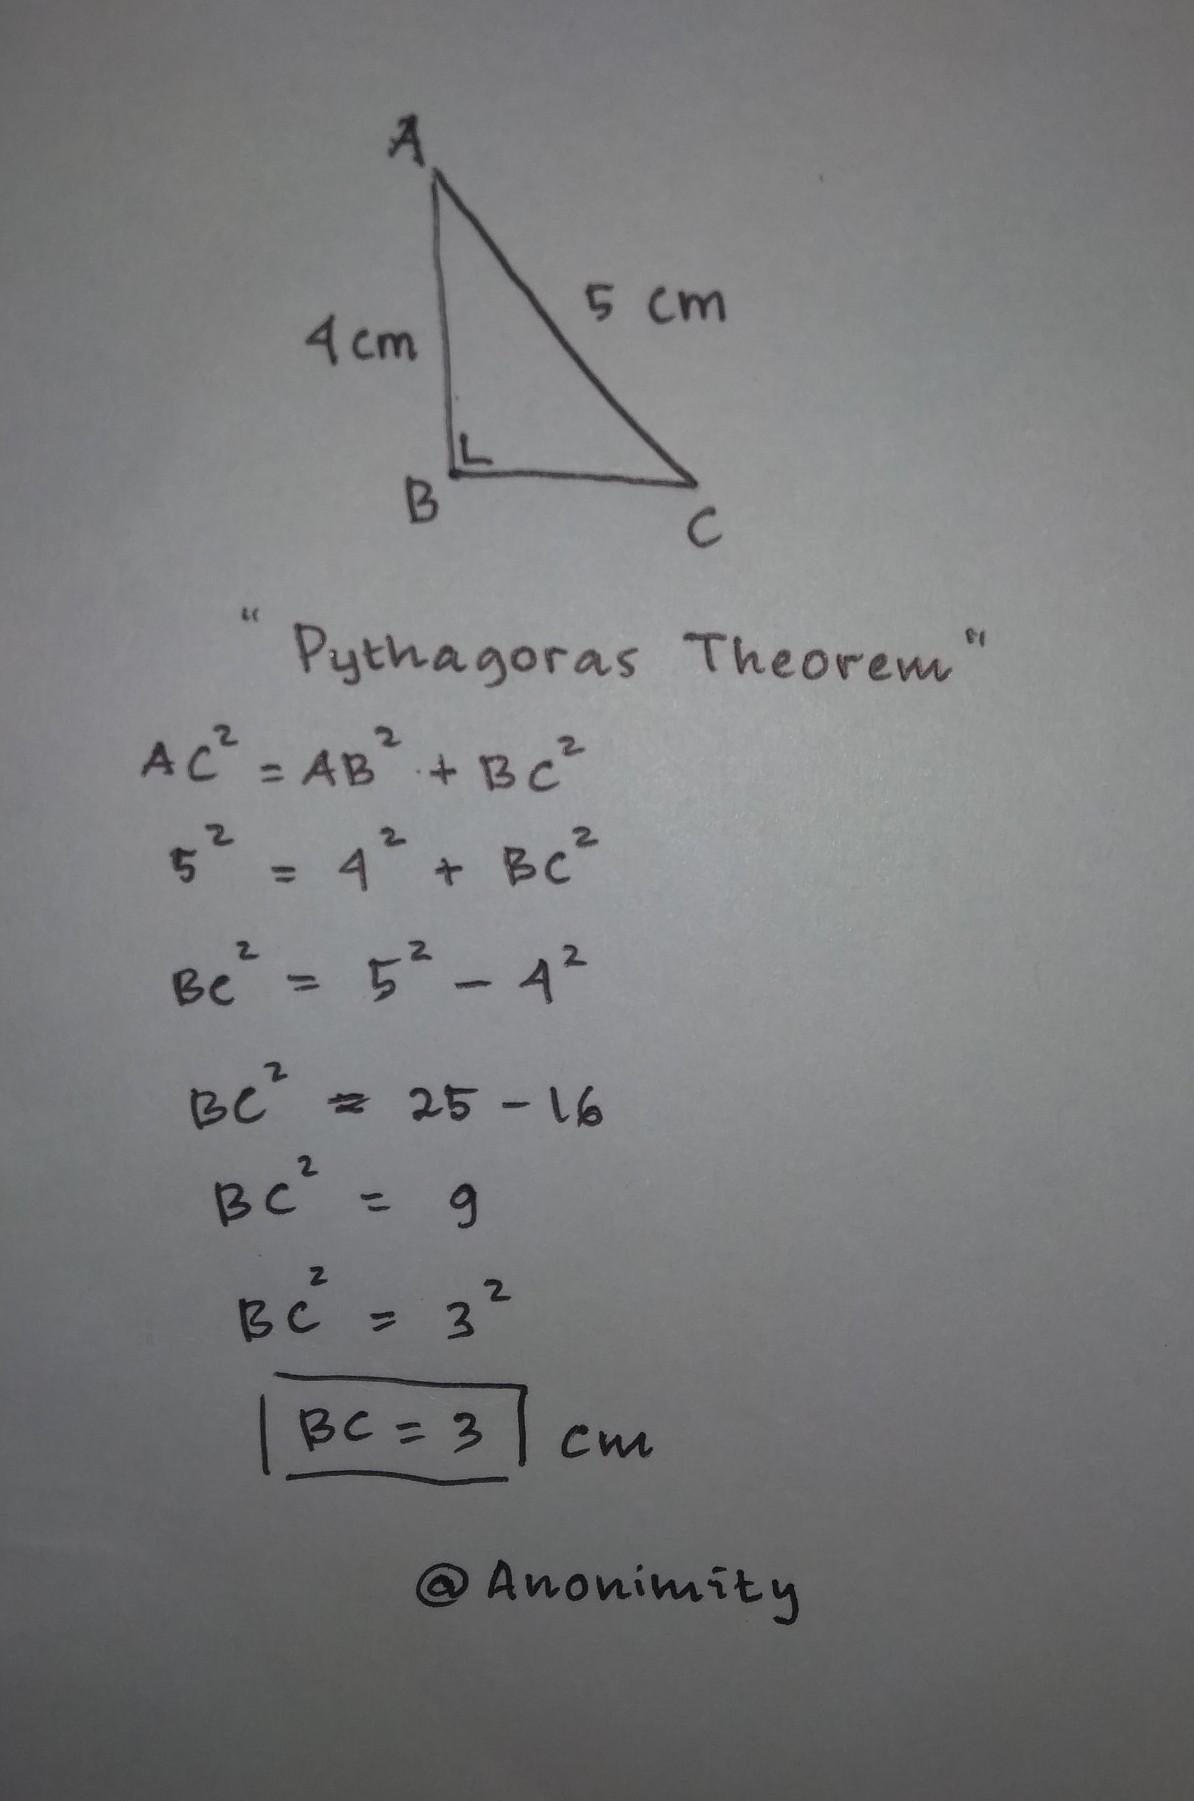 A
5 cm
4 cm
B
C
"Pythagoras Theorem"
AC² = AB² + BC²
5² = 4² + BC²
BC² = 5² - 4²
BC² = 25 - 16
BC² = 9
BC² = 3²
BC = 3 cm
@Anonimity